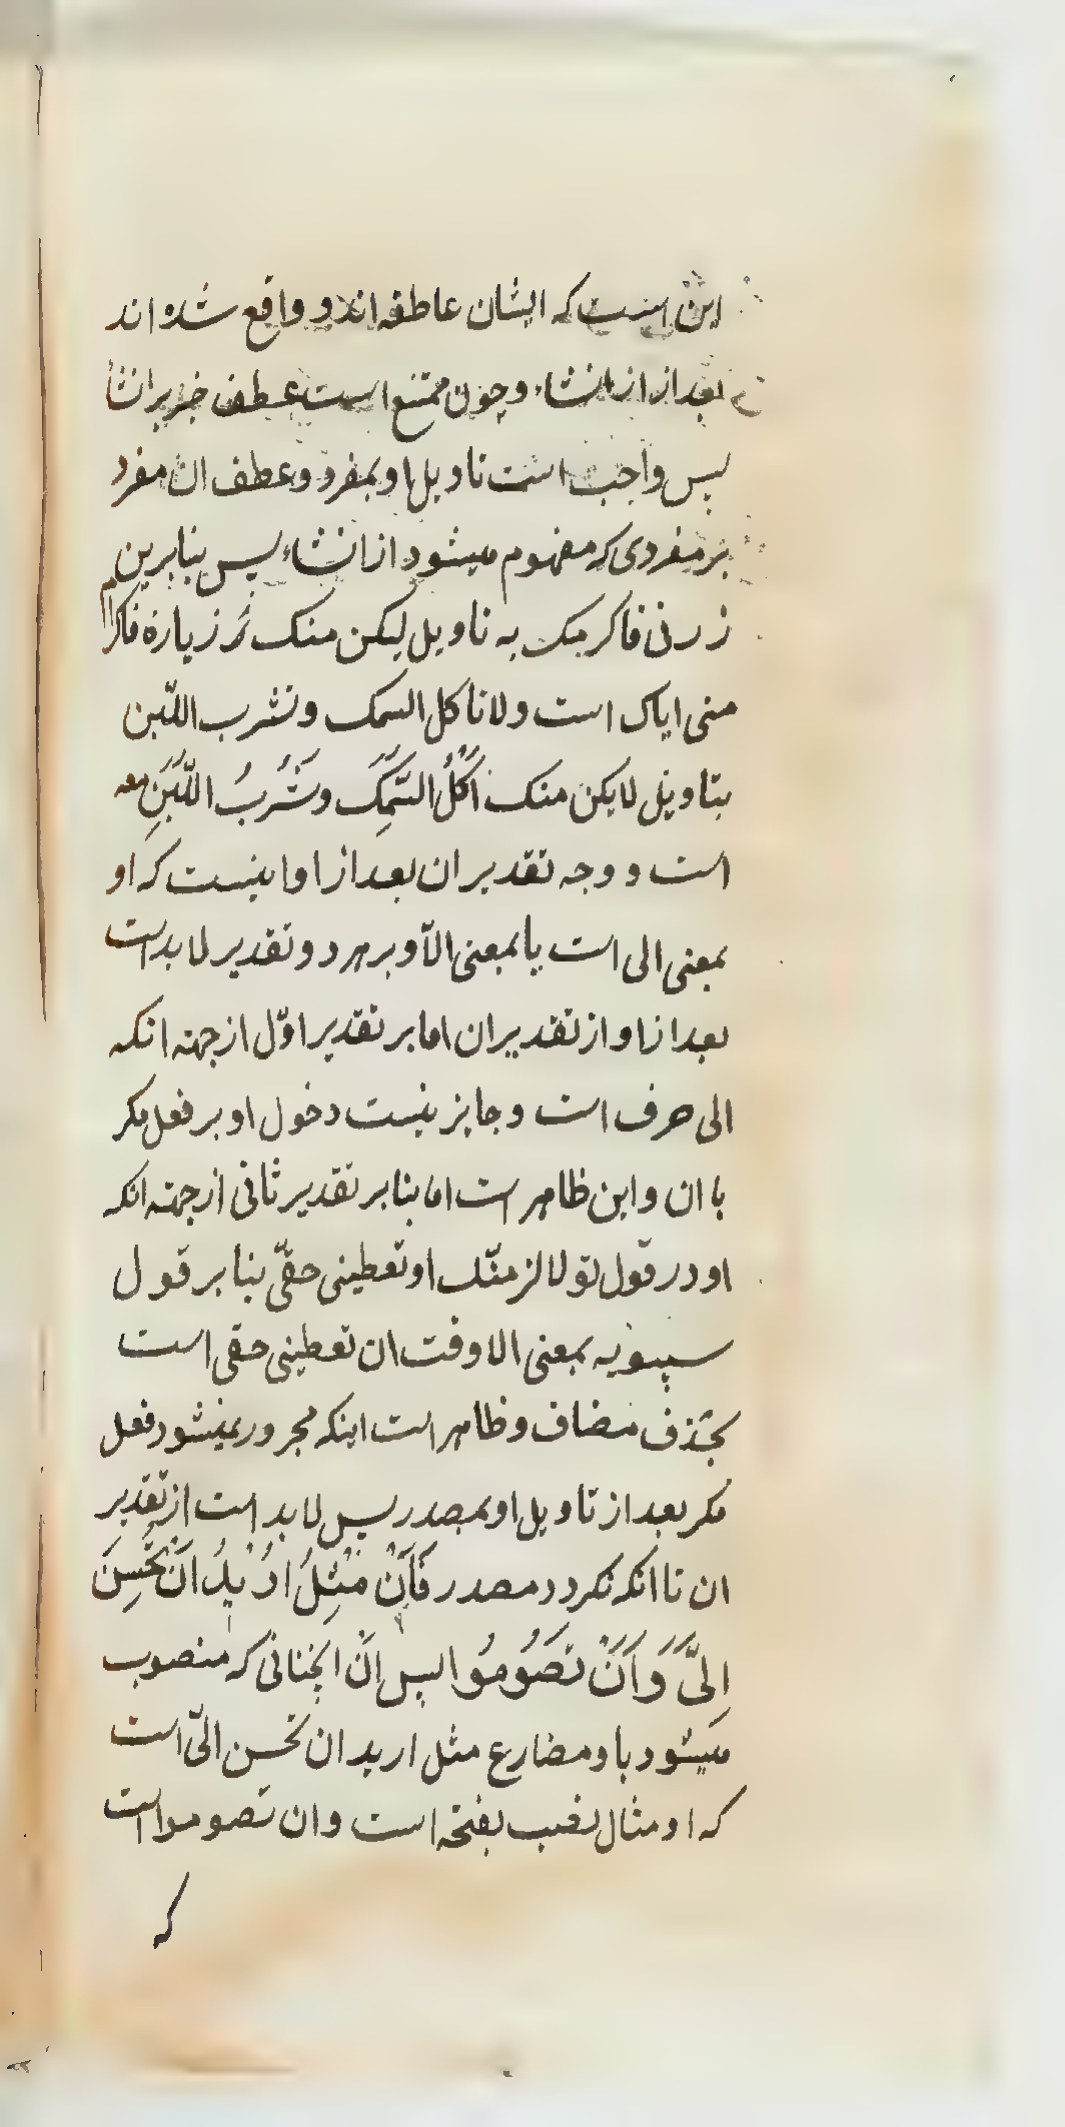 این است که ایشان عاطفه اند و واقع شده اند
بعد از انشاء وچون ممتنع است عطف خبر بر انشا
پس واجب است تاویل او بمفرد وعطف ان مفرد
بر مفردی که مفهوم میشود از انشاء پس بنابرین
زرنی فاکرمک به تاویل لیکن منک زیارة فاکرام
منی ایاک است ولا تاکل السمک وتشرب اللّبن
بتاویل لا یکن منک اَکْلُ السَّمَکِ وشُرْبُ اللَّبَنِ معه
است و وجه تقدیر ان بعد از او اینست که او
بمعنی الی است یا بمعنی الّا وبر هر دو تقدیر لابد است
بعد از او از تقدیر ان اما بر تقدیر اوّل از جهته انکه
الی حرف است وجایز نیست دخول او بر فعل مکر
با ان واین ظاهر است اما بنابر تقدیر ثانی از جهته انکه
او در قول تو لالزمنّک او تعطینی حقّی بنا بر قول
سیبویه بمعنی الا وقت ان تعطینی حقی است
بحذف مضاف وظاهر است اینکه مجرور نمیشود فعل
مکر بعد از تاویل او بمصدر پس لابد است از تقدیر
ان تا انکه نکردد مصدر فَاَنْ مِثْلُ اُرِیْدُ اَنْ تُحْسِنَ
اِلَیَّ وَاَنْ تَصُوْمُوا پس اَنْ انچنانی که منصوب
میشود باو مضارع مثل ارید ان تحسن الیّ است
که او مثال نصب بفتحه است وان تصوموا است
که